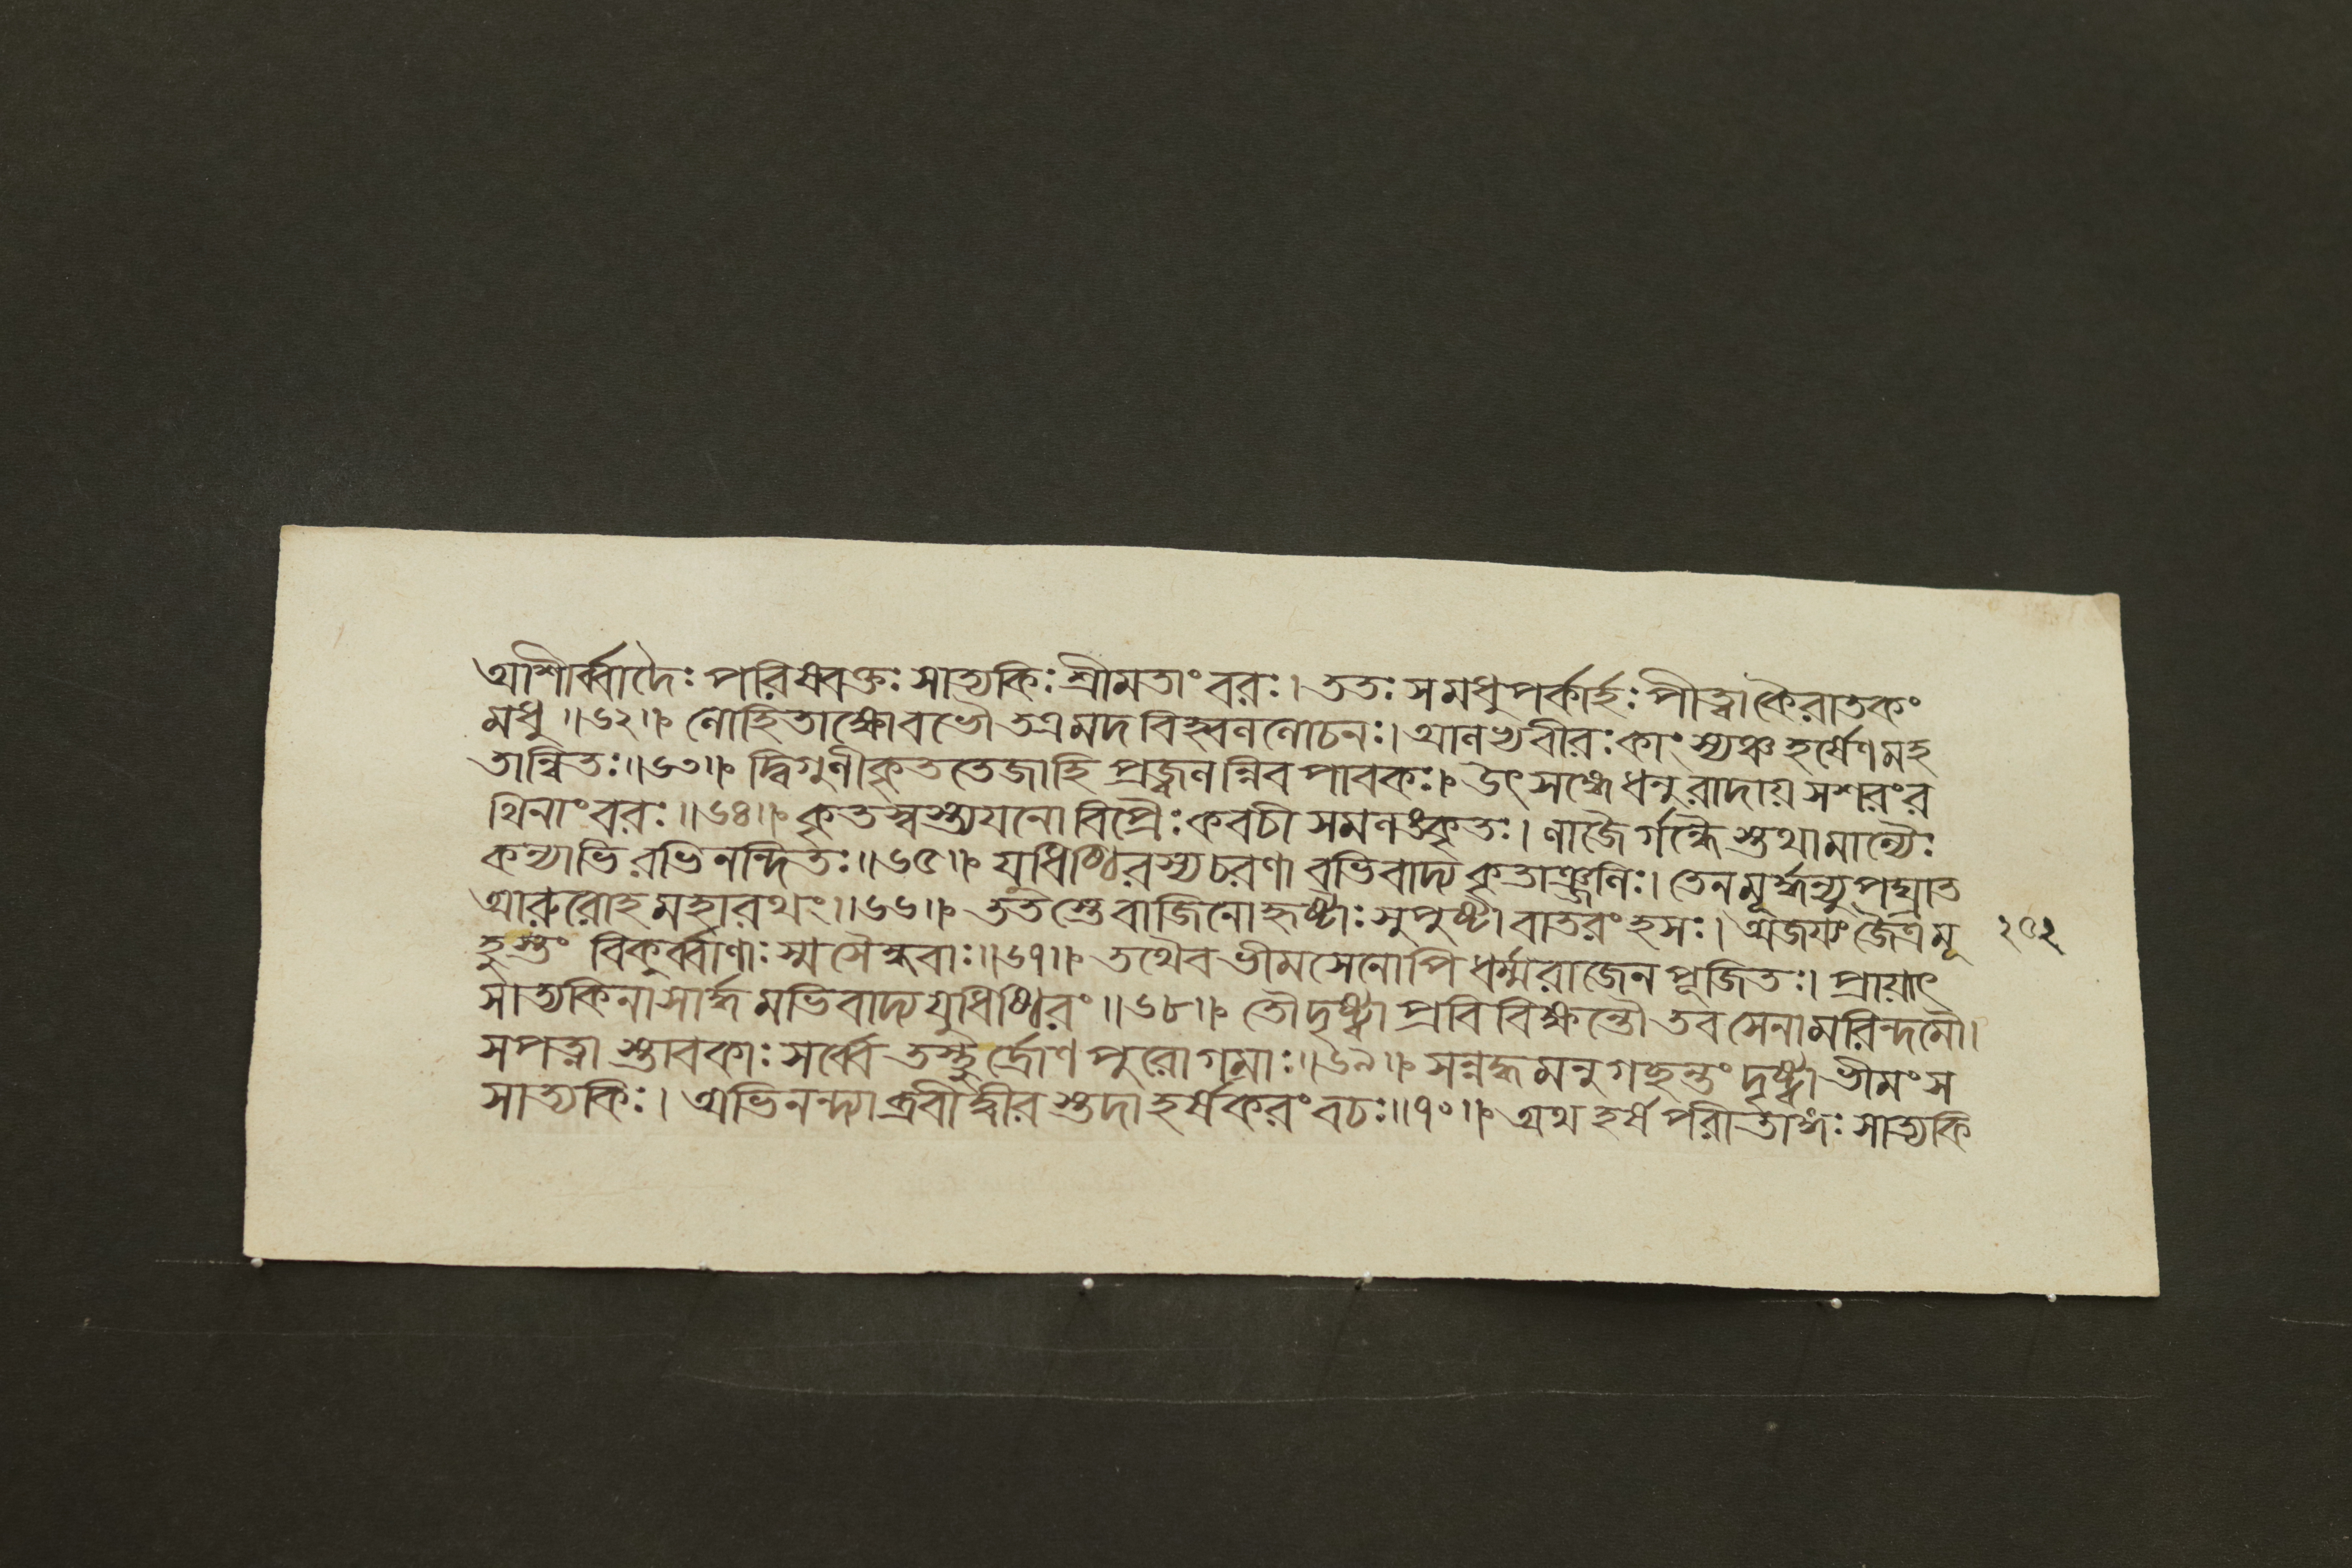 আশীর্ব্বাদৈঃ পরিষ্বক্তঃ সাত্যকিঃ শ্রীমতাং বরঃ। ততঃ সমধুপর্কার্হঃ পীত্বা কৈরাতকং
মধু ॥৬২॥ লোহিতাক্ষো বভৌ তত্র মদবিহ্বললোচনঃ। আলভ্য বীরঃ কাংস্যঞ্চ হর্ষেণ মহ
তান্বিতঃ॥৬৩॥ দ্বিগুণীকৃততেজা হি প্রজ্বলন্নিব পাবকঃ। উৎসঙ্গে ধনুরাদায় সশরং র
থিনাং বরঃ॥৬৪॥ কৃতস্বস্ত্যয়নো বিপ্রৈঃ কবচী সমলঙ্কৃতঃ। লাজৈর্গন্ধৈস্তথা মাল্যৈঃ
কন্যাভিরভিনন্দিতঃ॥৬৫॥ যুধিষ্ঠিরস্য চরণাবভিবাদ্য কৃতাঞ্জলিঃ। তেন মূর্দ্ধন্যুপঘ্রাত
আরুরোহ মহারথং॥৬৬॥ ততস্তে বাজিনো হৃষ্টাঃ সুপুষ্টা বাতরংহসঃ। অজয্যং জৈত্রমূ ২০২
হুস্তং বিকুর্ব্বাণাঃ স্ম সৈন্ধবাঃ॥৬৭॥ তথৈব ভীমসেনোপি ধর্ম্মরাজেন পূজিতঃ। প্রায়াৎ
সাত্যকিনা সার্দ্ধমভিবাদ্য যুধিষ্ঠিরং॥৬৮॥ তৌ দৃষ্ট্বা প্রবিবিক্ষন্তৌ তব সেনামরিন্দমৌ।
সপত্নাস্তাবকাঃ সর্ব্বে তস্থুর্দ্রোণপুরোগমাঃ॥৬৯॥ সন্নদ্ধমনুগছন্তং দৃষ্ট্বা ভীমং স
সাত্যকিঃ। অভিনন্দ্যাব্রবীদ্বীরস্তদা হর্ষকরং বচঃ॥৭০॥ অথ হর্ষপরীতাঙ্গঃ সাত্যকি